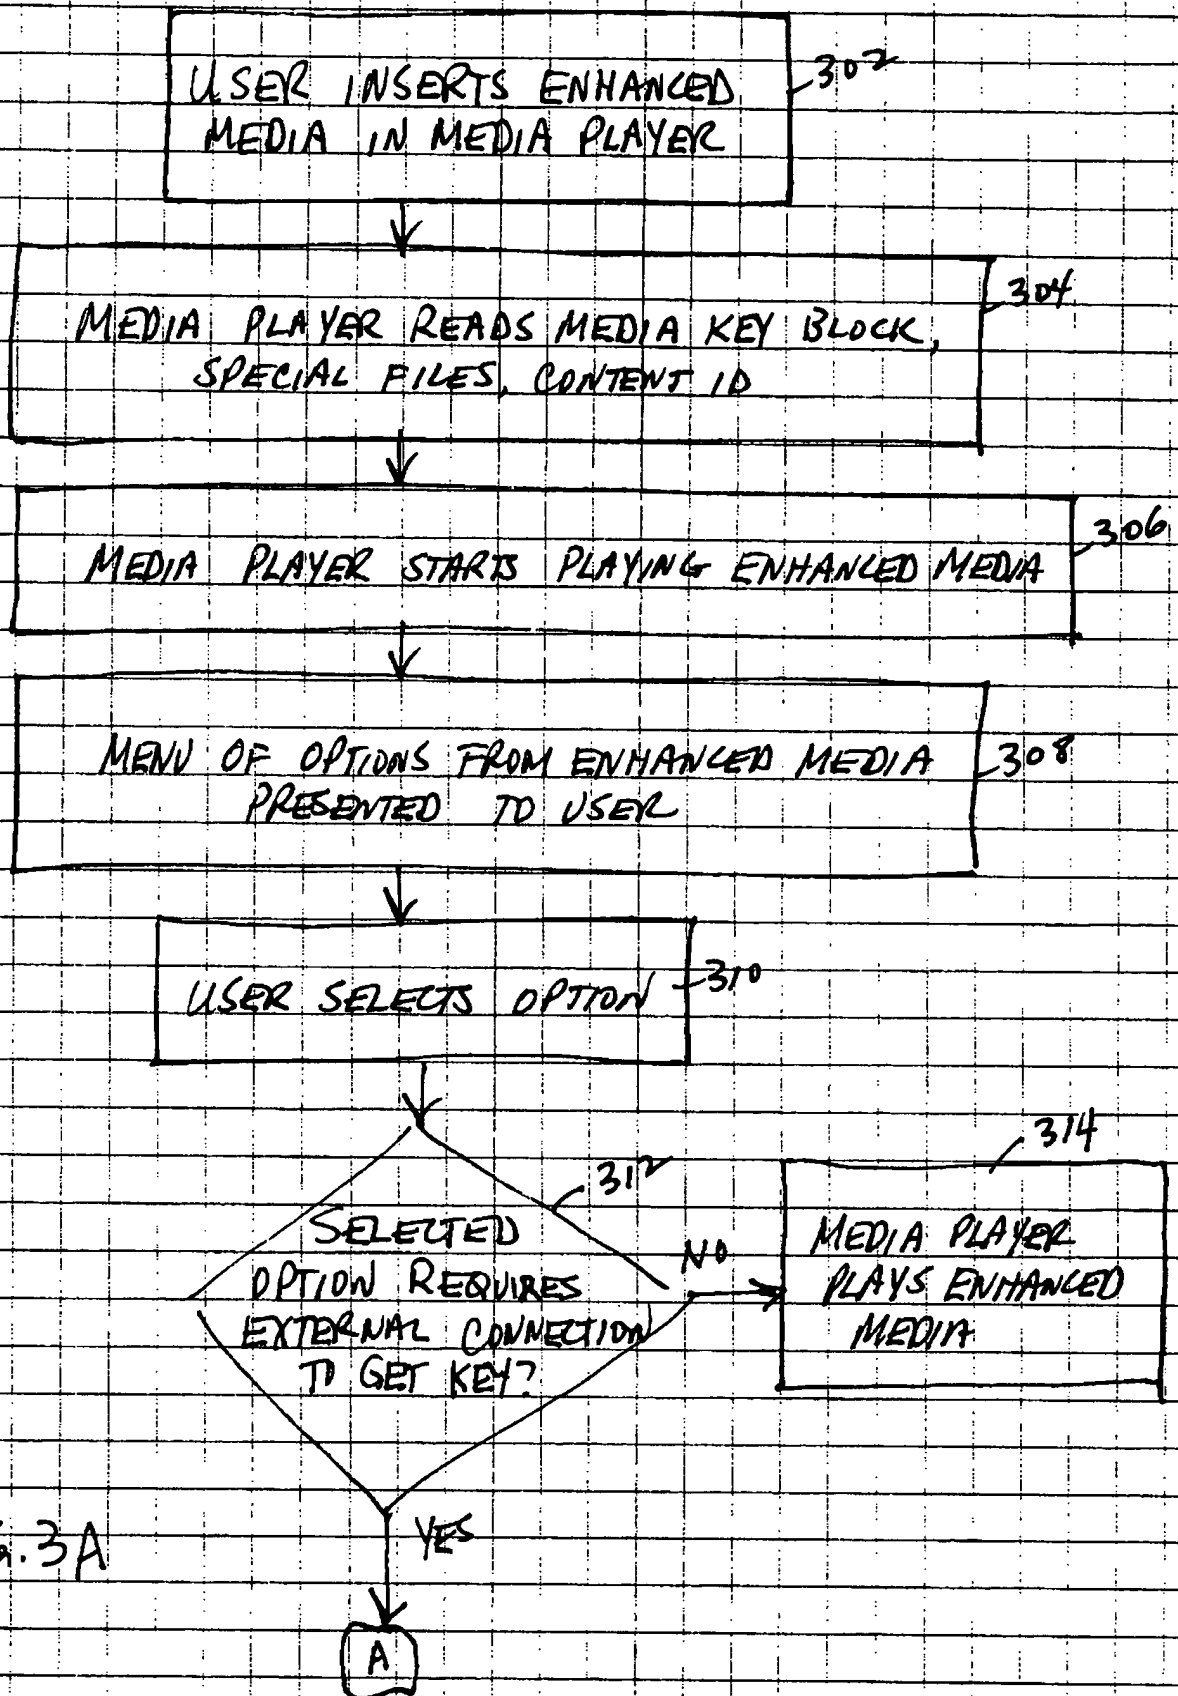 USER INSERTS ENHANCED
MEDIA IN MEDIA PLAYER
302
MEDIA PLAYER READS MEDIA KEY BLOCK,
SPECIAL FILES, CONTENT ID
304
MEDIA PLAYER STARTS PLAYING ENHANCED MEDIA
306
MENU OF OPTIONS FROM ENHANCED MEDIA
PRESENTED TO USER
308
USER SELECTS OPTION
310
312
SELECTED
OPTION REQUIRES
EXTERNAL CONNECTION
TO GET KEY?
NO
314
MEDIA PLAYER
PLAYS ENHANCED
MEDIA
YES
. 3A
A